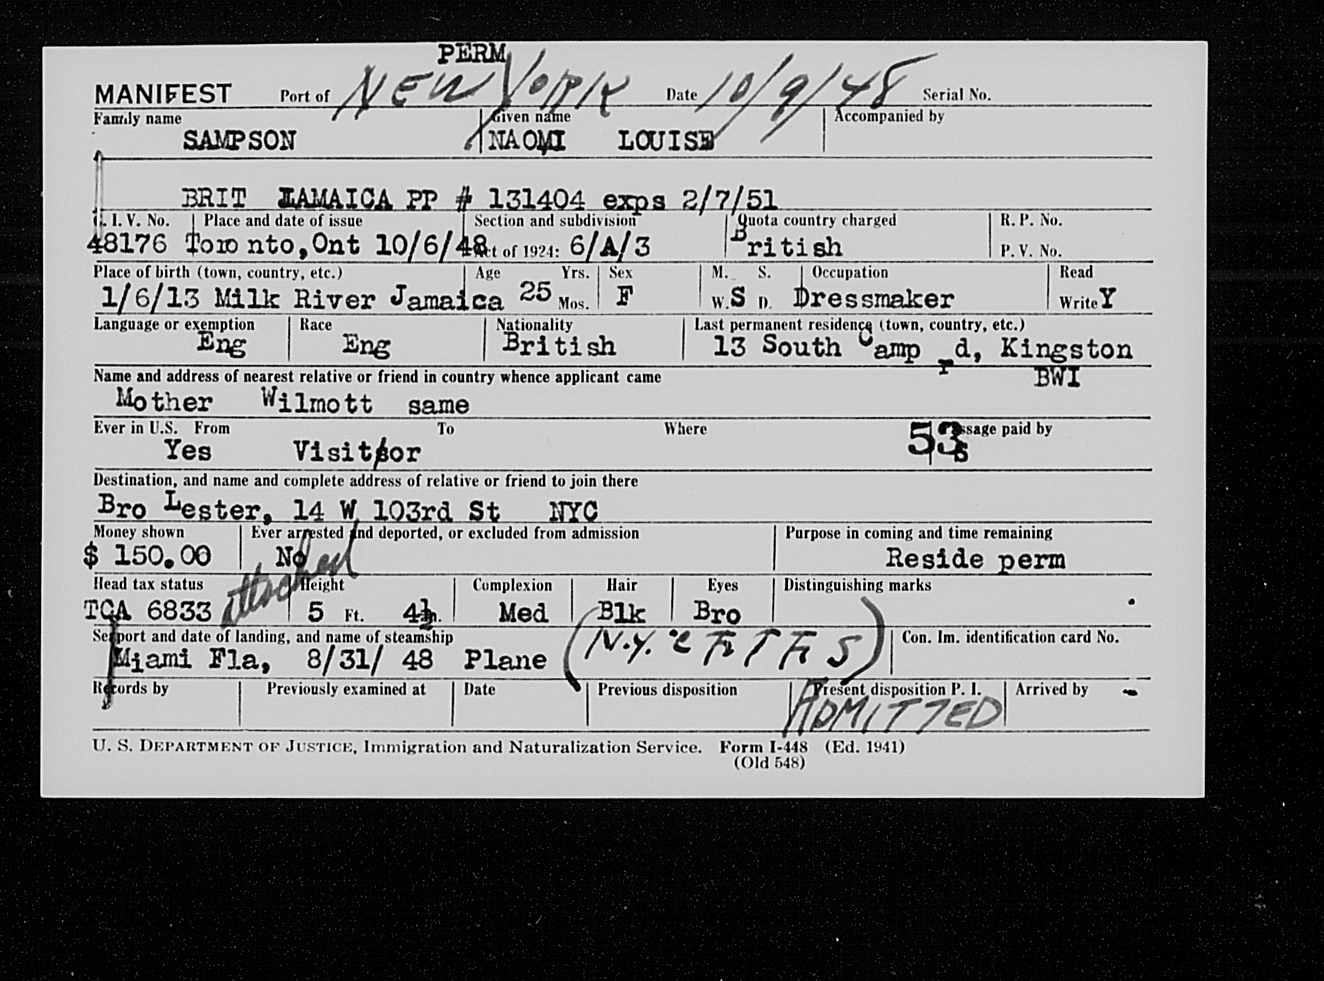 PERM
MANIFEST Port of NEW YORK Date 10/9/48 Serial No.
Family name Given name Accompanied by
SAMPSON NAOMI LOUISE
BRIT JAMAICA PP # 131404 exps 2/7/51
I. V. No. Place and date of issue Section and subdivision Quota country charged R. P. No.
48176 Toronto,Ont 10/6/48 Act of 1924: 6/A/3 British P. V. No.
Place of birth (town, country, etc.) Age Yrs. Sex M. S. Occupation Read
1/6/13 Milk River Jamaica 25 Mos. F W. S D. Dressmaker Write Y
Language or exemption Race Nationality Last permanent residence (town, country, etc.)
Eng Eng British 13 South Camp rd, Kingston
Name and address of nearest relative or friend in country whence applicant came BWI
Mother Wilmott same
Ever in U.S. From To Where Passage paid by
Yes Visitor 53 s
Destination, and name and complete address of relative or friend to join there
Bro Lester, 14 W 103rd St NYC
Money shown Ever arrested and deported, or excluded from admission Purpose in coming and time remaining
$ 150.00 No Reside perm
attached
Head tax status Height Complexion Hair Eyes Distinguishing marks
TCA 6833 5 Ft. 4½ In. Med Blk Bro
Seaport and date of landing, and name of steamship Con. Im. identification card No.
Miami Fla, 8/31/ 48 Plane
Records by Previously examined at Date Previous disposition Present disposition P. I. Arrived by
ADMITTED
U. S. DEPARTMENT OF JUSTICE, Immigration and Naturalization Service. Form I-448 (Ed. 1941)
(Old 548)